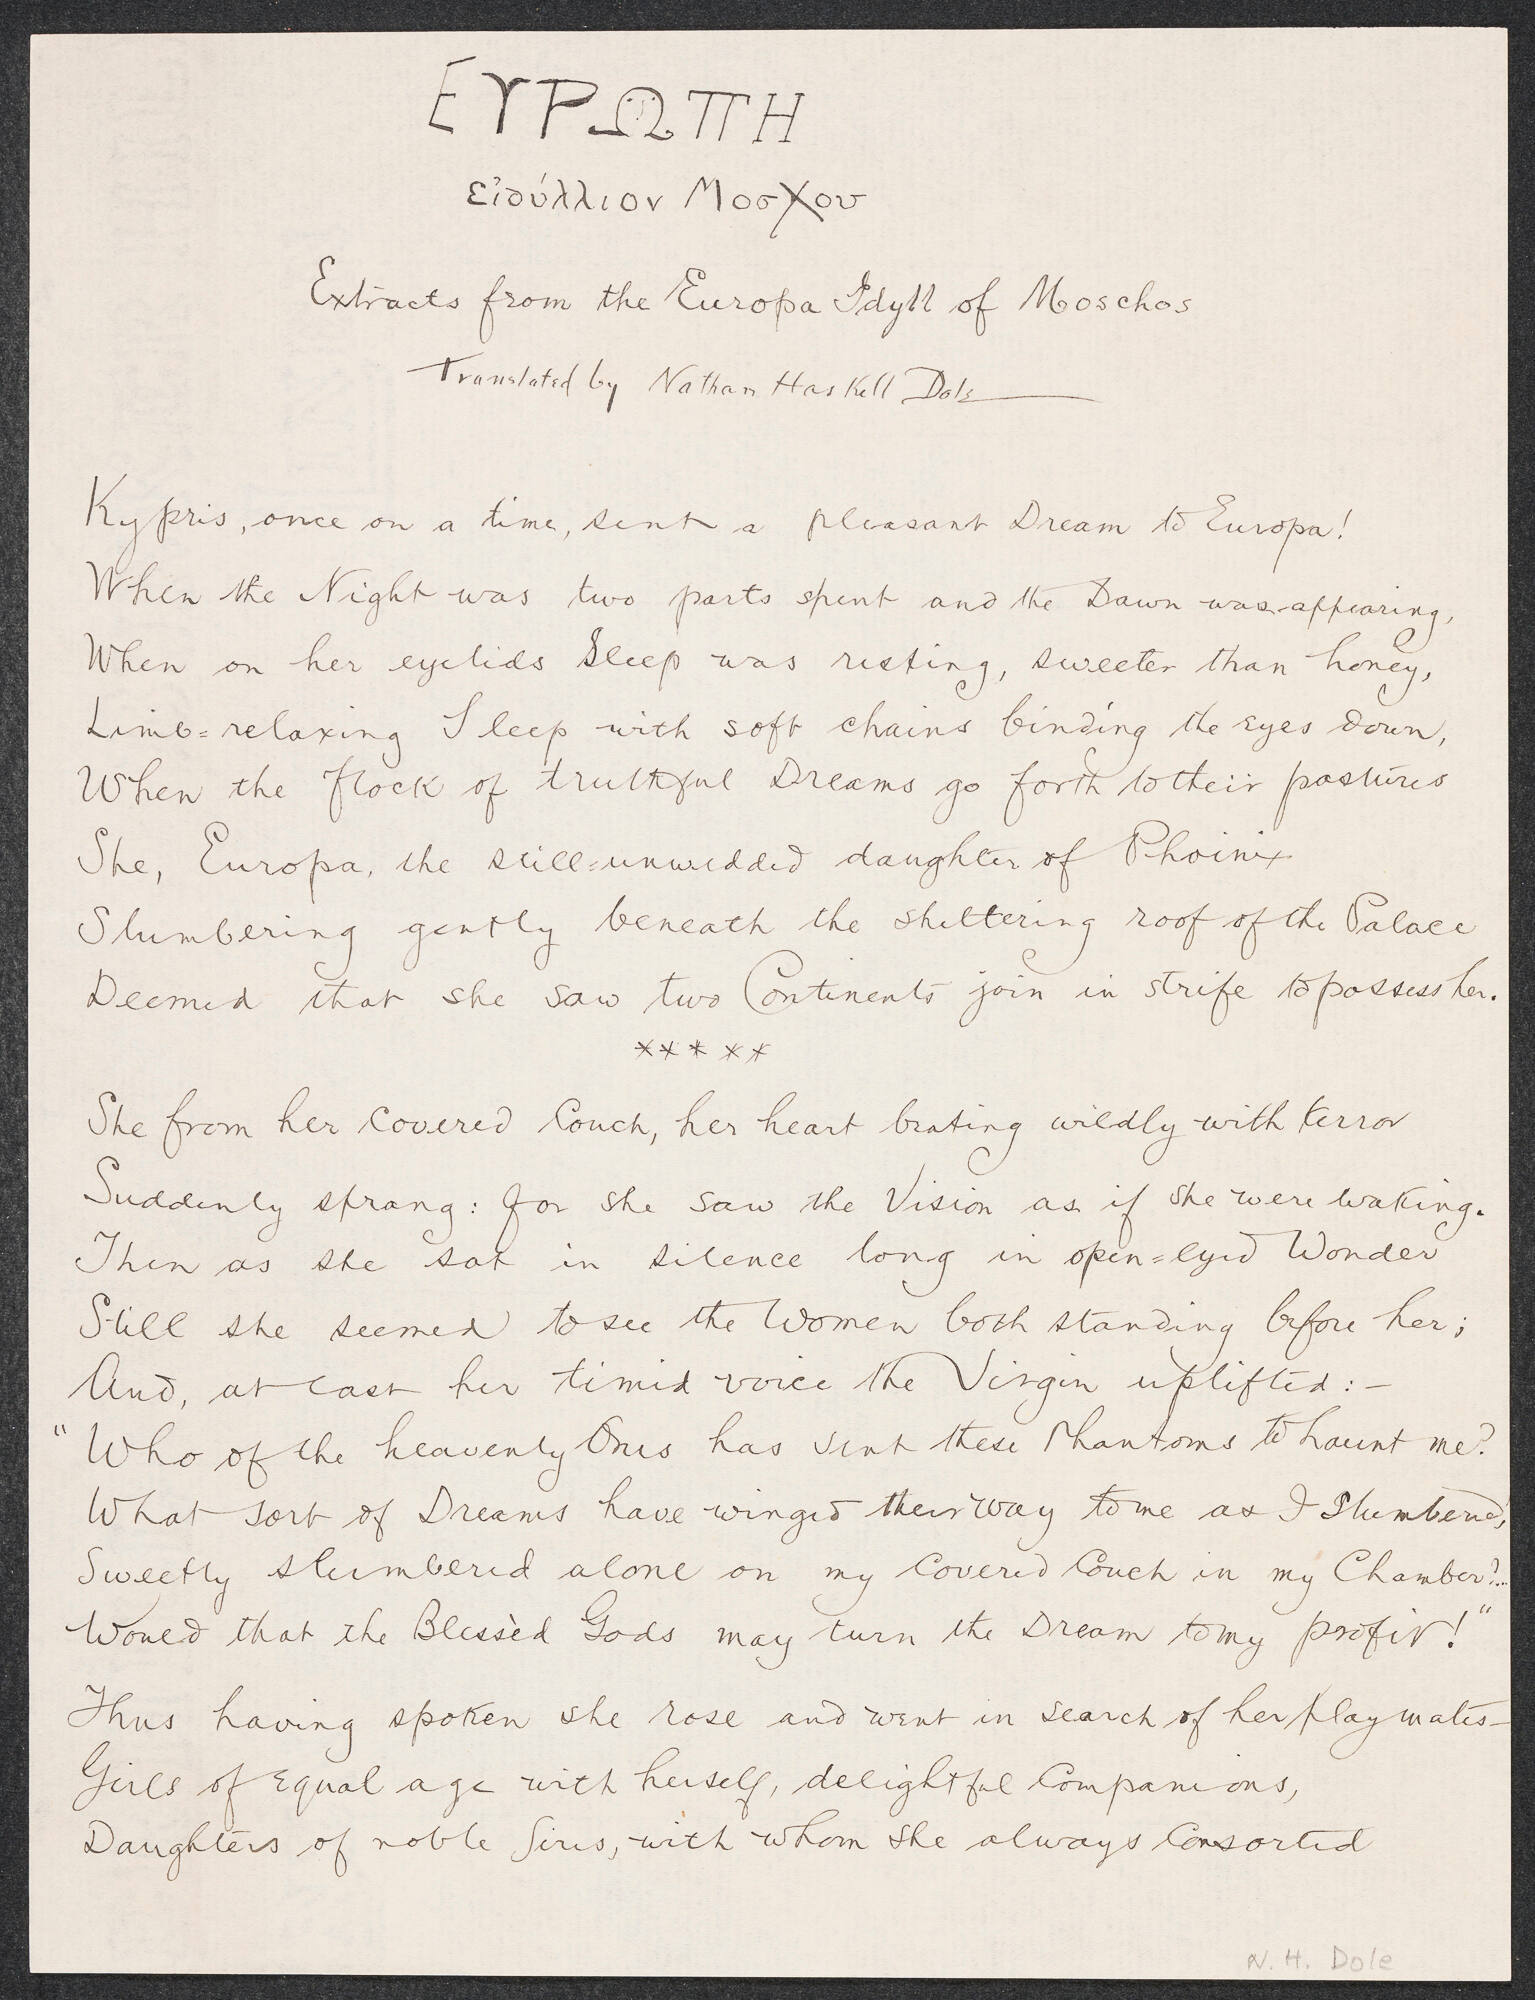 ΕΥΡΩΠΗ
εἰδύλλιον Μοσχου
Extracts from the Europa Idyll of Moschos
Translated by Nathan Haskell Dole
Kypris, once on a time, sent a pleasant Dream to Europa!
When the Night was two parts spent and the Dawn was appearing,
When on her eyelids Sleep was resting, sweeter than honey,
Limb=relaxing Sleep with soft chains binding the eyes down,
When the flock of truthful Dreams go forth to their pastures
She, Europa, the still=unwedded daughter of Phoinix
Slumbering gently beneath the sheltering roof of the Palace
Deemed that she saw two Continents join in strife to possess her.
* * * * *
She from her covered Couch, her heart beating wildly with terror
Suddenly sprang: for she saw the Vision as if she were waking.
Then as she sat in silence long in open=eyed Wonder
Still she seemed to see the Women both standing before her;
And, at last her timid voice the Virgin uplifted:—
"Who of the heavenly Ones has sent these Phantoms to haunt me?
What sort of Dreams have winged their way to me as I slumbered,
Sweetly slumbered alone on my covered Couch in my Chamber?..
Would that the Blessèd Gods may turn the Dream to my profit!"
Thus having spoken she rose and went in search of her playmates—
Girls of equal age with herself, delightful Companions,
Daughters of noble Sires, with whom she always Consorted
N. H. Dole